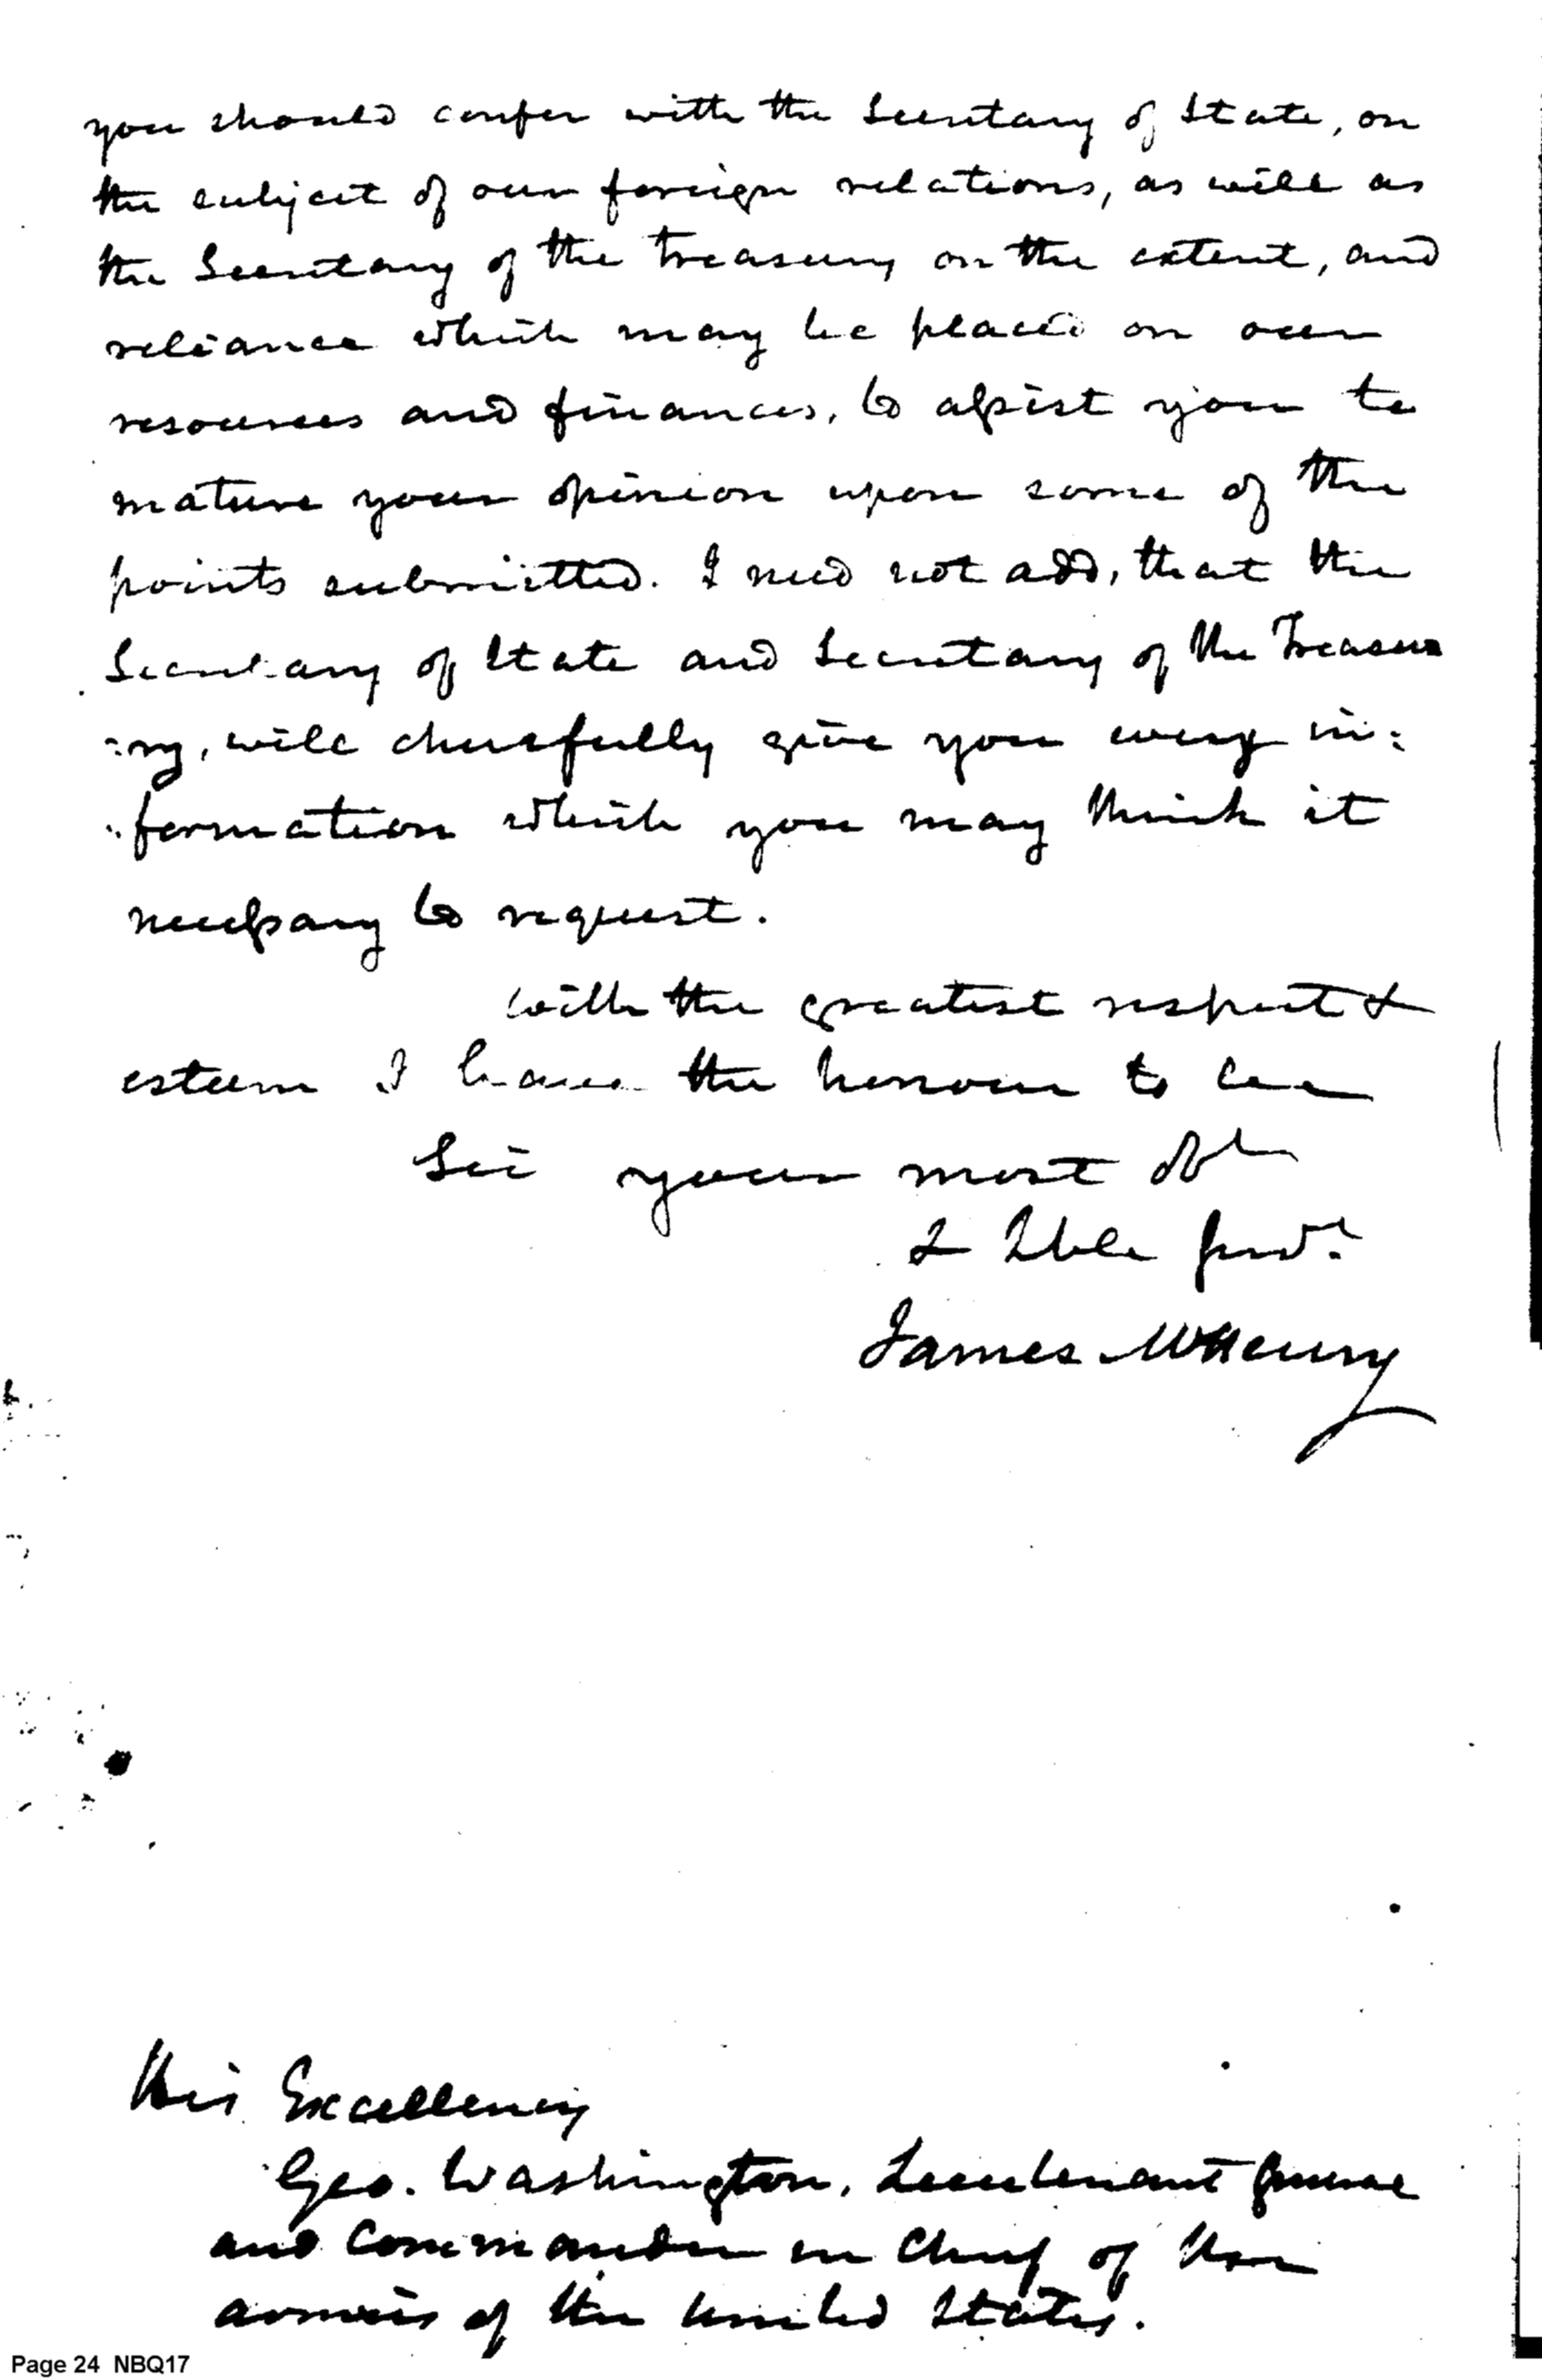 you should confer with the Secretary of State, on
the subject of our foreign relations, as well as
the Secretary of the treasury on the extent, and
reliance which may be placed on our
resources and finances, to assist you to
mature your opinion upon some of the
points submitted. I need not add, that the
Secretary of State and Secretary of the Treasu
:ry, will chearfully give you every in:
:formation which you may think it
necessary to request.
with the greatest respect &
esteem I have the honour to be
Sir your most obt
& hble servt
James McHenry
His Excellency
Geo. Washington, Lieutenant General
and Commander in Chief of the
armies of the United States.
Page 24 NBQ17